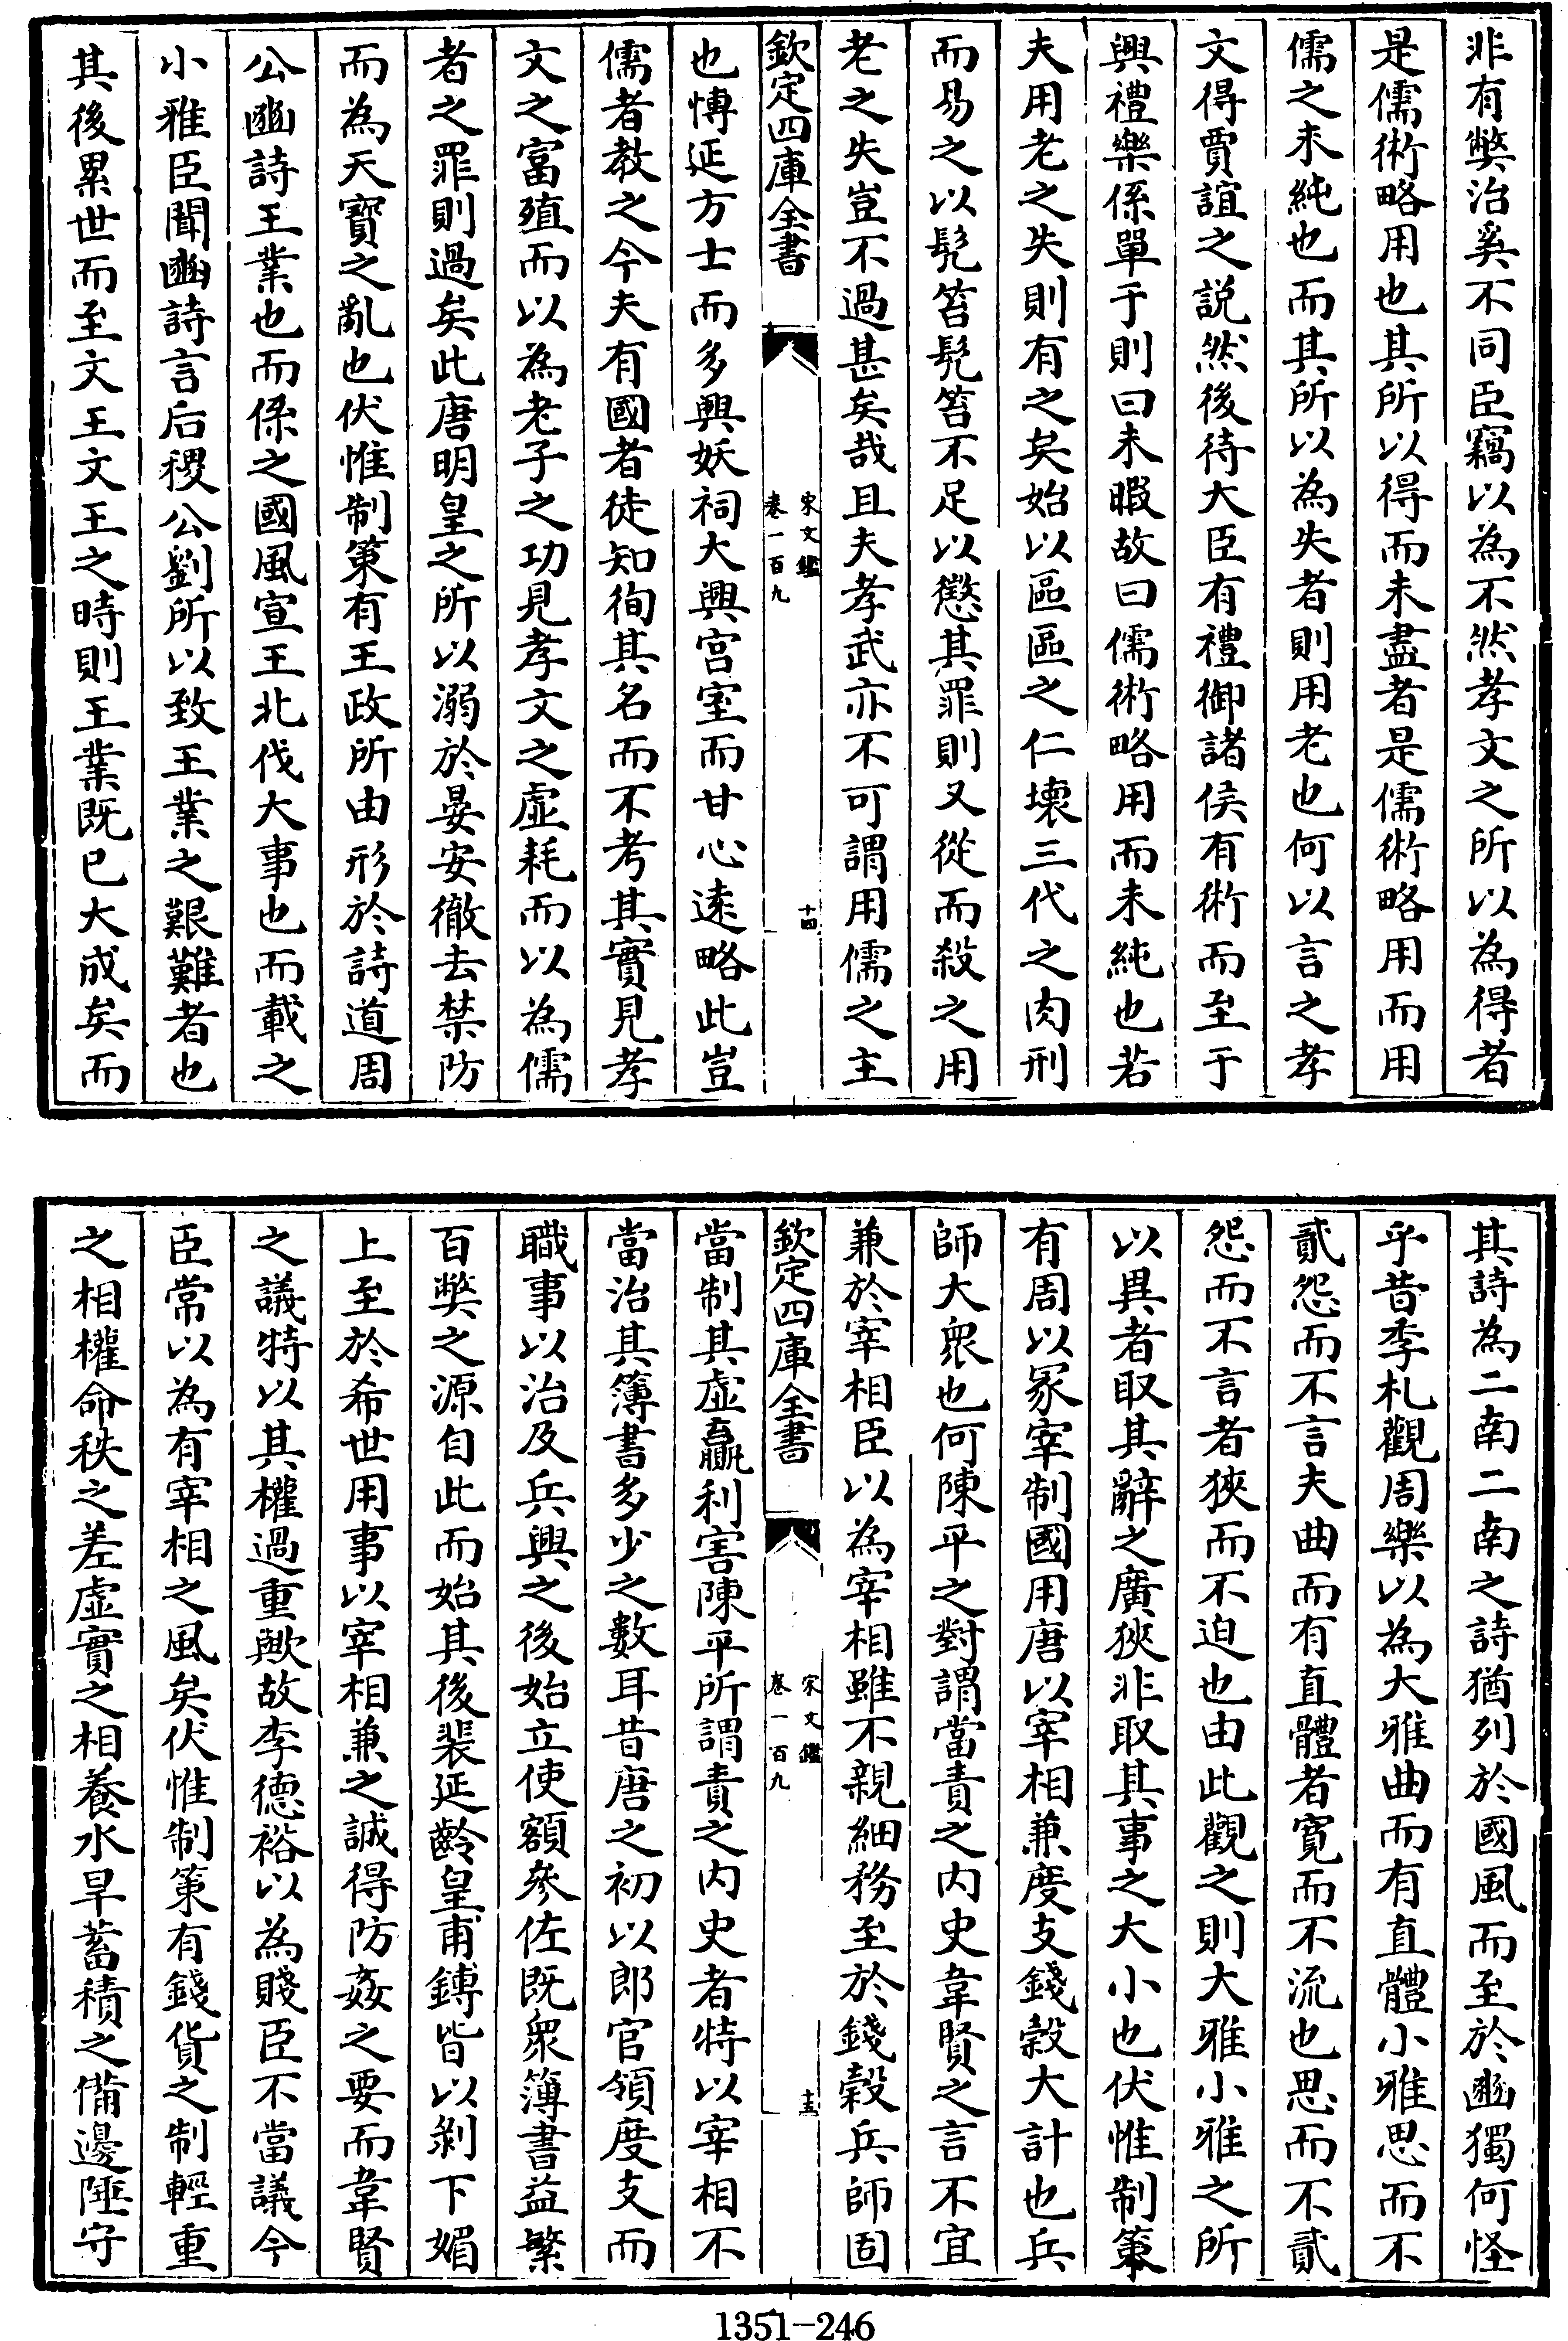 非有弊治奚不同臣竊以為不然孝文之所以為得者
是儒術略用也其所以得而未盡者是儒術略用而用
儒之未純也而其所以為失者則用老也何以言之孝
文得賈誼之説然後待大臣有禮御諸侯有術而至于
興禮樂係單于則曰未暇故曰儒術略用而未純也若
夫用老之失則有之矣始以區區之仁壊三代之肉刑
而易之以髡笞髡笞不足以懲其罪則又從而殺之用
老之失豈不過甚矣哉且夫孝武亦不可謂用儒之主
欽定四庫全書
宋文鑑
卷一百九
十四
也博延方士而多興妖祠大興宫室而甘心逺略此豈
儒者教之今夫有國者徒知徇其名而不考其實見孝
文之富殖而以為老子之功見孝文之虚耗而以為儒
者之罪則過矣此唐明皇之所以溺於晏安徹去禁防
而為天寶之亂也伏惟制策有王政所由形於詩道周
公豳詩王業也而係之國風宣王北伐大事也而載之
小雅臣聞豳詩言后稷公劉所以致王業之艱難者也
其後累世而至文王文王之時則王業既已大成矣而
其詩為二南二南之詩猶列於國風而至於豳獨何怪
乎昔季札觀周樂以為大雅曲而有直體小雅思而不
貳怨而不言夫曲而有直體者寛而不流也思而不貳
怨而不言者狹而不迫也由此觀之則大雅小雅之所
以異者取其辭之廣狹非取其事之大小也伏惟制策
有周以冢宰制國用唐以宰相兼度支錢榖大計也兵
師大衆也何陳平之對謂當責之内史韋賢之言不宜
兼於宰相臣以為宰相雖不親細務至於錢榖兵師固
欽定四庫全書
宋文鑑
卷一百九
十五
當制其虚贏利害陳平所謂責之内史者特以宰相不
當治其簿書多少之數耳昔唐之初以郎官領度支而
職事以治及兵興之後始立使額參佐既衆簿書益繁
百弊之源自此而始其後裴延齡皇甫鎛皆以剥下媚
上至於希世用事以宰相兼之誠得防姦之要而韋賢
之議特以其權過重歟故李德裕以為賤臣不當議今
臣常以為有宰相之風矣伏惟制策有錢貨之制輕重
之相權命秩之差虚實之相養水旱蓄積之備邊陲守
1351-246